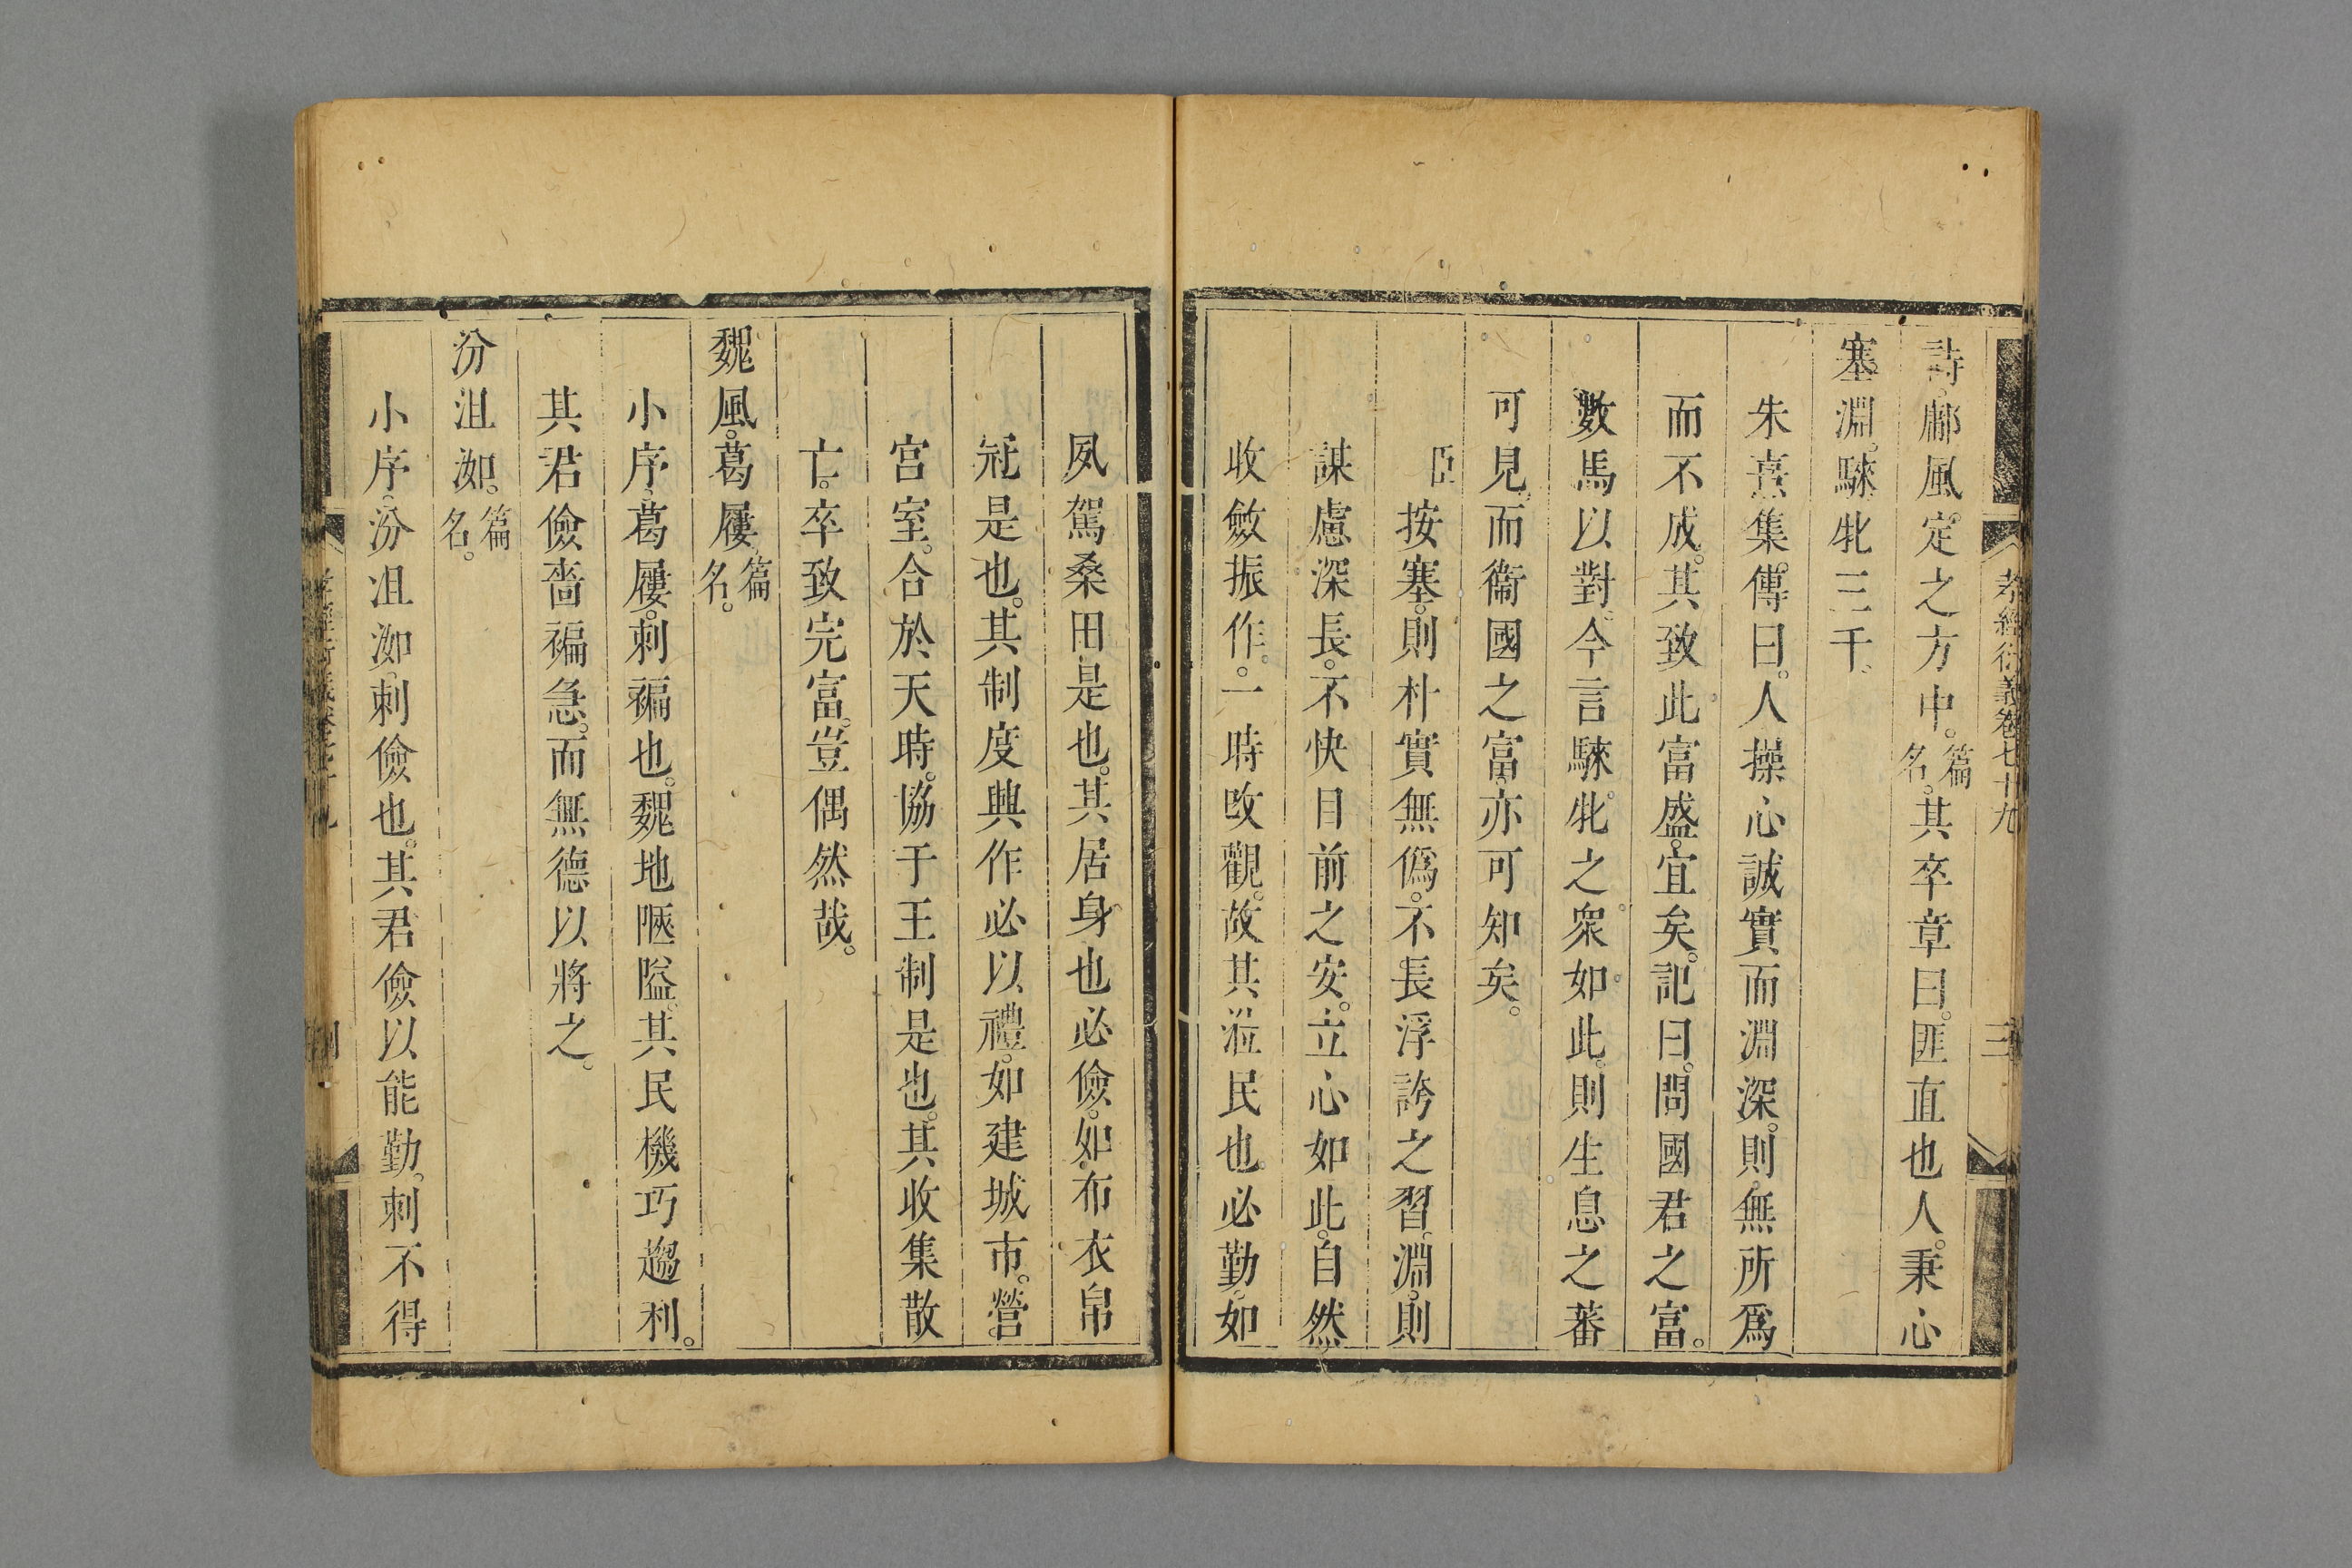 孝經衍義卷七十九
三
詩。鄘風。定之方中。篇名。其卒章曰。匪直也人。秉心
塞淵。騋牝三千。
朱熹集傳曰。人操心誠實而淵深。則無所爲
而不成。其致此富盛。宜矣。記曰。問國君之富。
數馬以對。今言騋牝之衆如此。則生息之蕃
可見。而衞國之富。亦可知矣。
臣按塞。則朴實無僞。不長浮誇之習。淵。則
謀慮深長。不快目前之安。立心如此。自然
收斂振作。一時改觀。故其涖民也必勤。如
夙駕桑田是也。其居身也必儉。如布衣帛
冠是也。其制度興作必以禮。如建城市。營
宮室。合於天時。協于王制是也。其收集散
亡。卒致完富。豈偶然哉。
魏風。葛屨。篇名。
小序。葛屨。刺褊也。魏地陿隘。其民機巧趨利。
其君儉嗇褊急。而無德以將之。
汾沮洳。篇名。
小序。汾沮洳。刺儉也。其君儉以能勤。刺不得